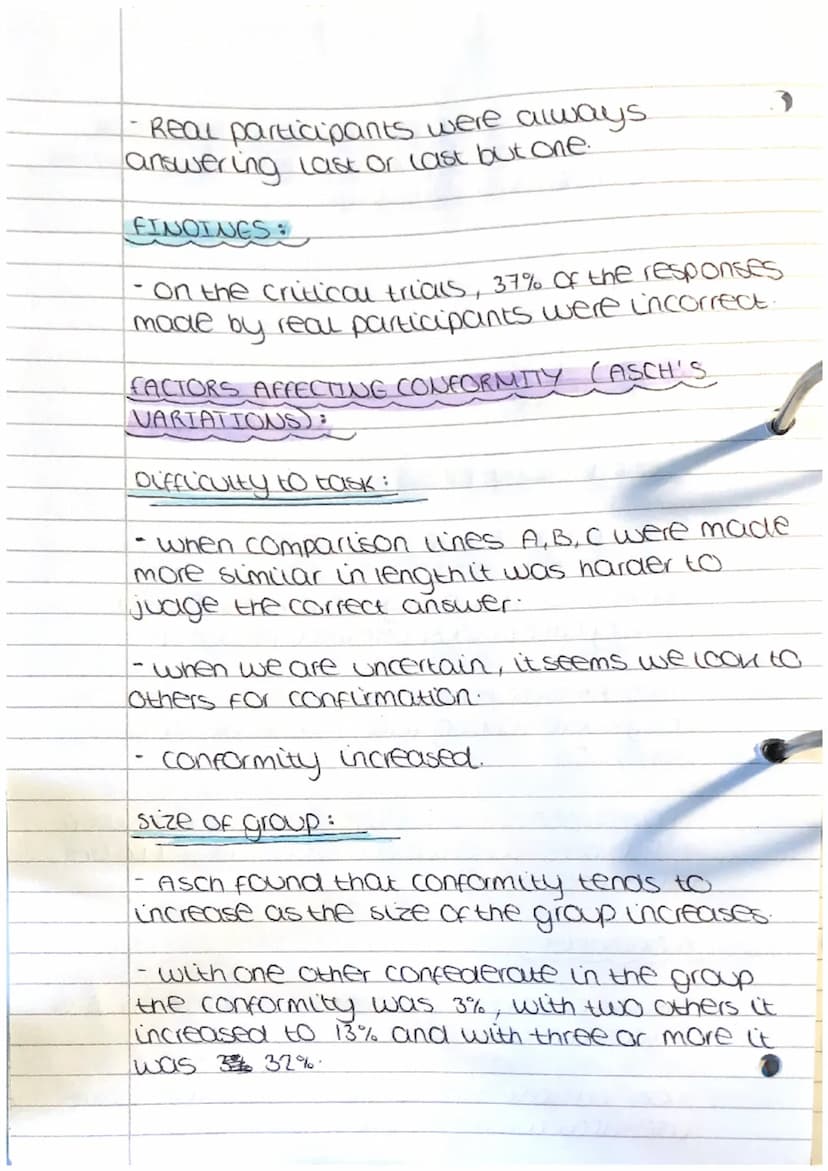 - Real participants were always
answering last or last but one.
FINDINGS:
- On the critical trials, 37% of the responses
made by real participants were incorrect.
FACTORS AFFECTING CONFORMITY (ASCH'S
VARIATIONS):
Difficulty to task:
- when comparison lines A, B, C were made
more similar in length it was harder to
judge the correct answer.
- when we are uncertain, it seems we look to
others for confirmation.
- conformity increased.
size of group:
- Asch found that conformity tends to
increase as the size of the group increases.
- with one other confederate in the group
the conformity was 3%, with two others it
increased to 13% and with three or more it
was 32%.